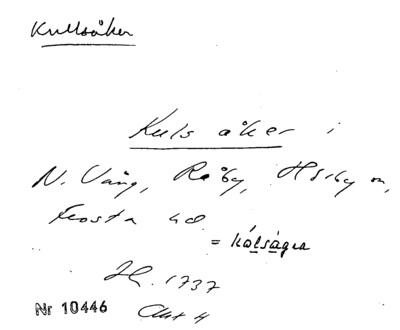 Kullsåker
Kuls åker i
N. Vång, Råby, Hörby sn,
Frosta hd
= kålságra
1737
Nr 10446 Akt 4